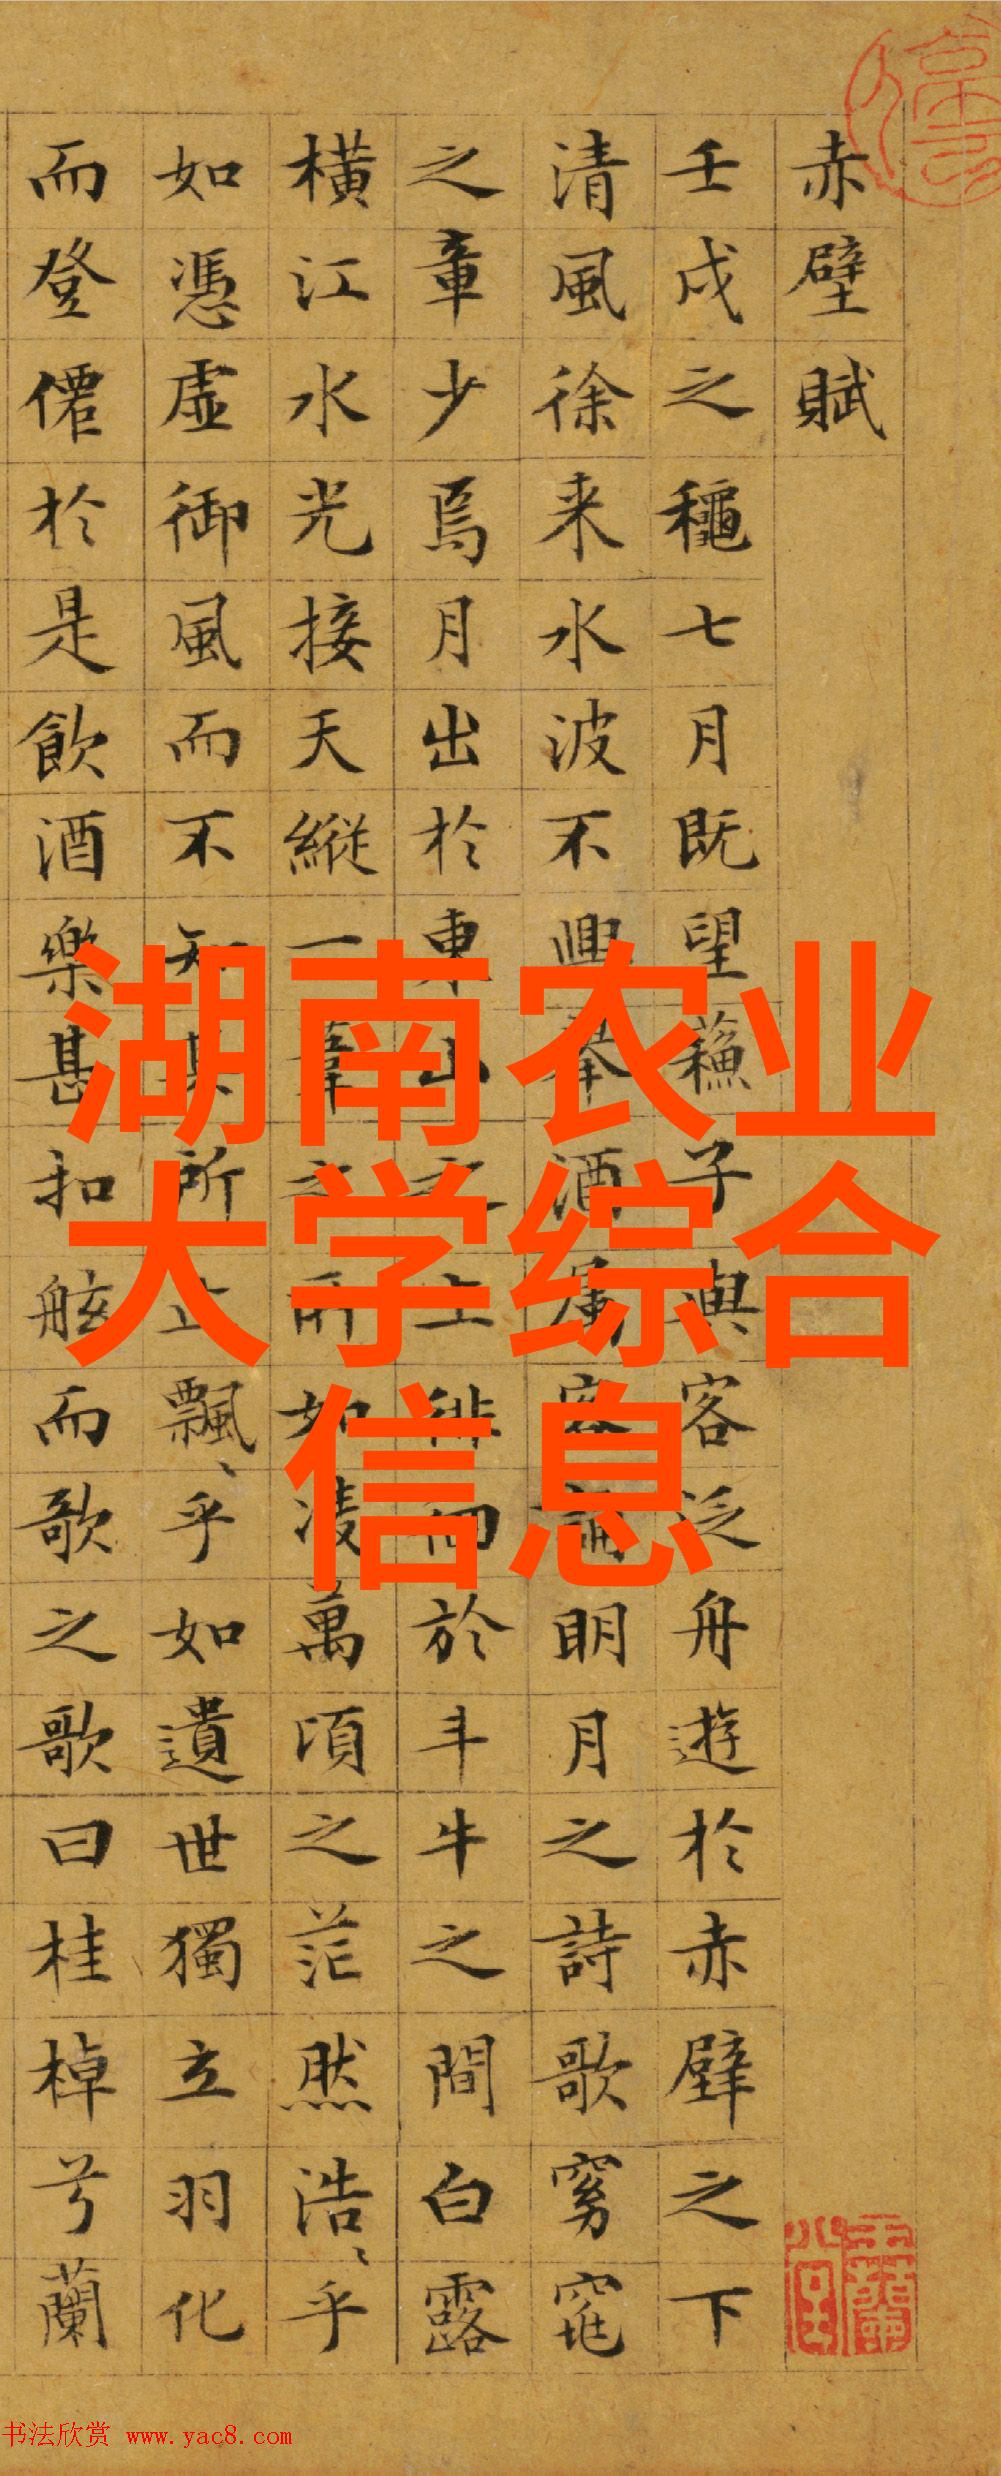 赤壁賦
壬戌之龝七月既望蘓子與客泛舟遊於赤壁之下
清風徐来水波不興舉酒属客誦明月之詩歌窈窕
之章少焉月出於東山之上徘徊於斗牛之間白露
橫江水光接天縱一葦之所如凌萬頃之茫然浩、乎
如憑虛御風而不知其所止飄、乎如遺世獨立羽化
而登僊於是飲酒樂甚扣舷而歌之歌曰桂棹兮蘭
湖南农业
大学综合
信息
书法欣赏 www.yac8.com